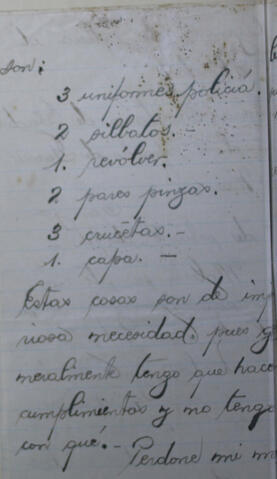 son:
3 uniformes policiá.
2 silbatos. -
1. revólver.
2 pares pinzas.
3 crucetas. -
1. capa. -
Estas cosas son de imp
riosa necesidad, pues g
neralmente tengo que hace
cumplimientos y no tengo
con qué. - Perdone mi m